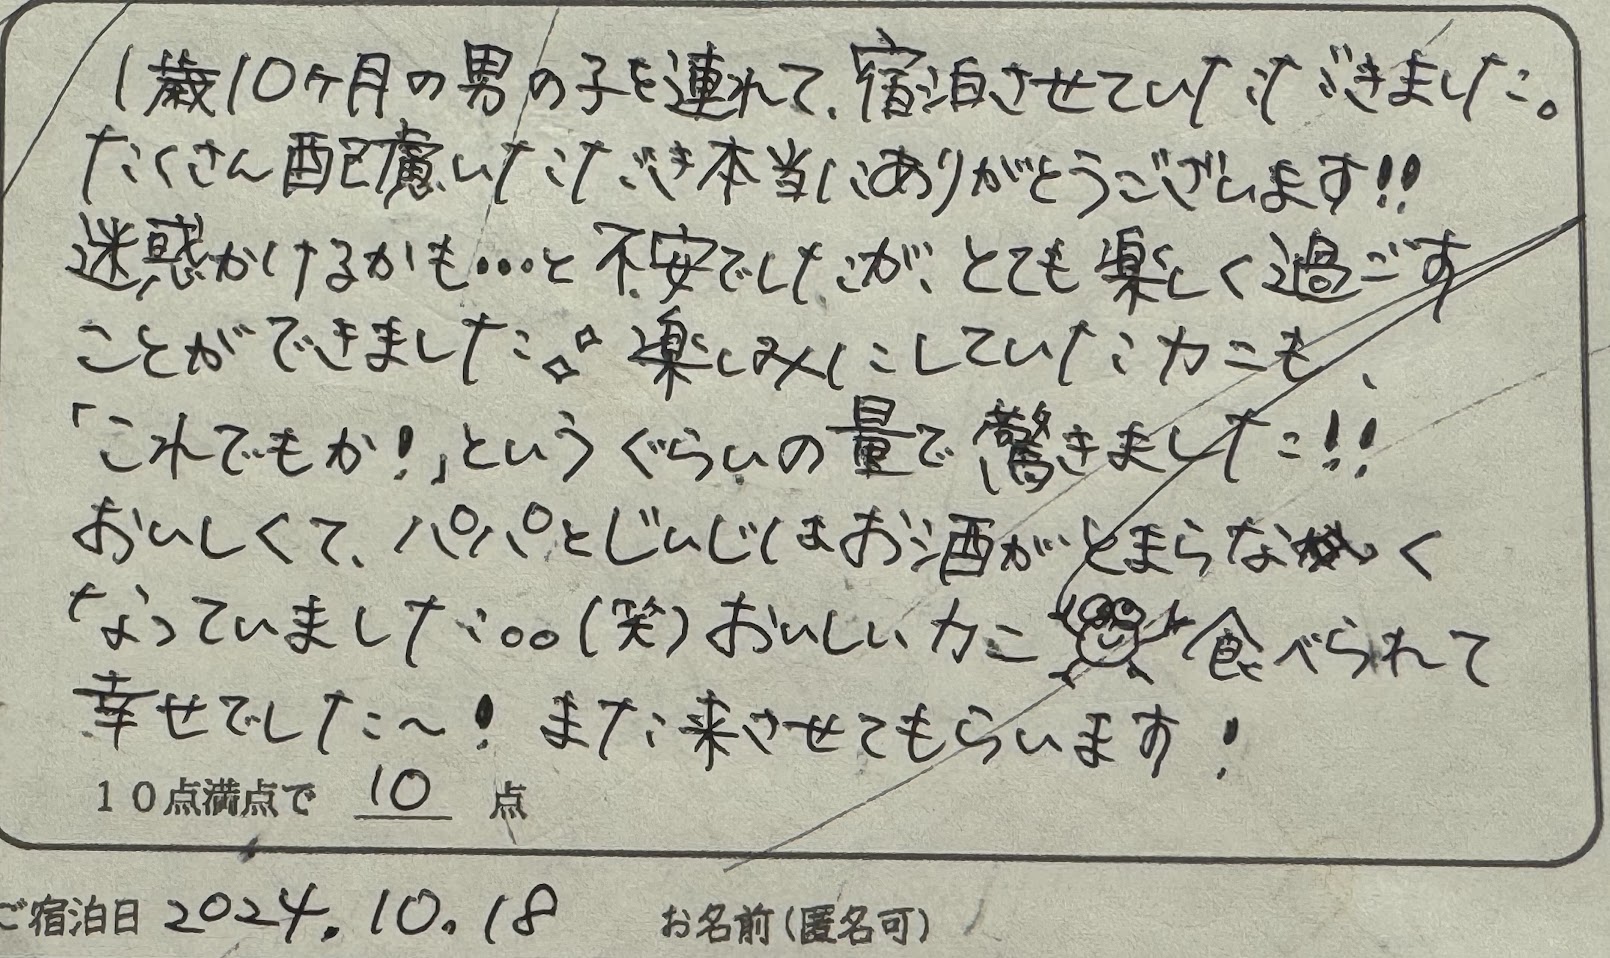 1歳10ヶ月の男の子を連れて、宿泊させていただきました。
たくさん配慮いただき本当にありがとうございます!!
迷惑かけるかも…と不安でしたが、とても楽しく過ごす
ことができました。楽しみにしていたカニも、
「これでもか!」というぐらいの量で驚きました!!
おいしくて、パパとじいじはお酒がとまらなく
なっていました。。(笑)おいしいカニ食べられて
幸せでした〜!また来させてもらいます!
10点満点で 10 点
ご宿泊日 2024.10.18 お名前(匿名可)